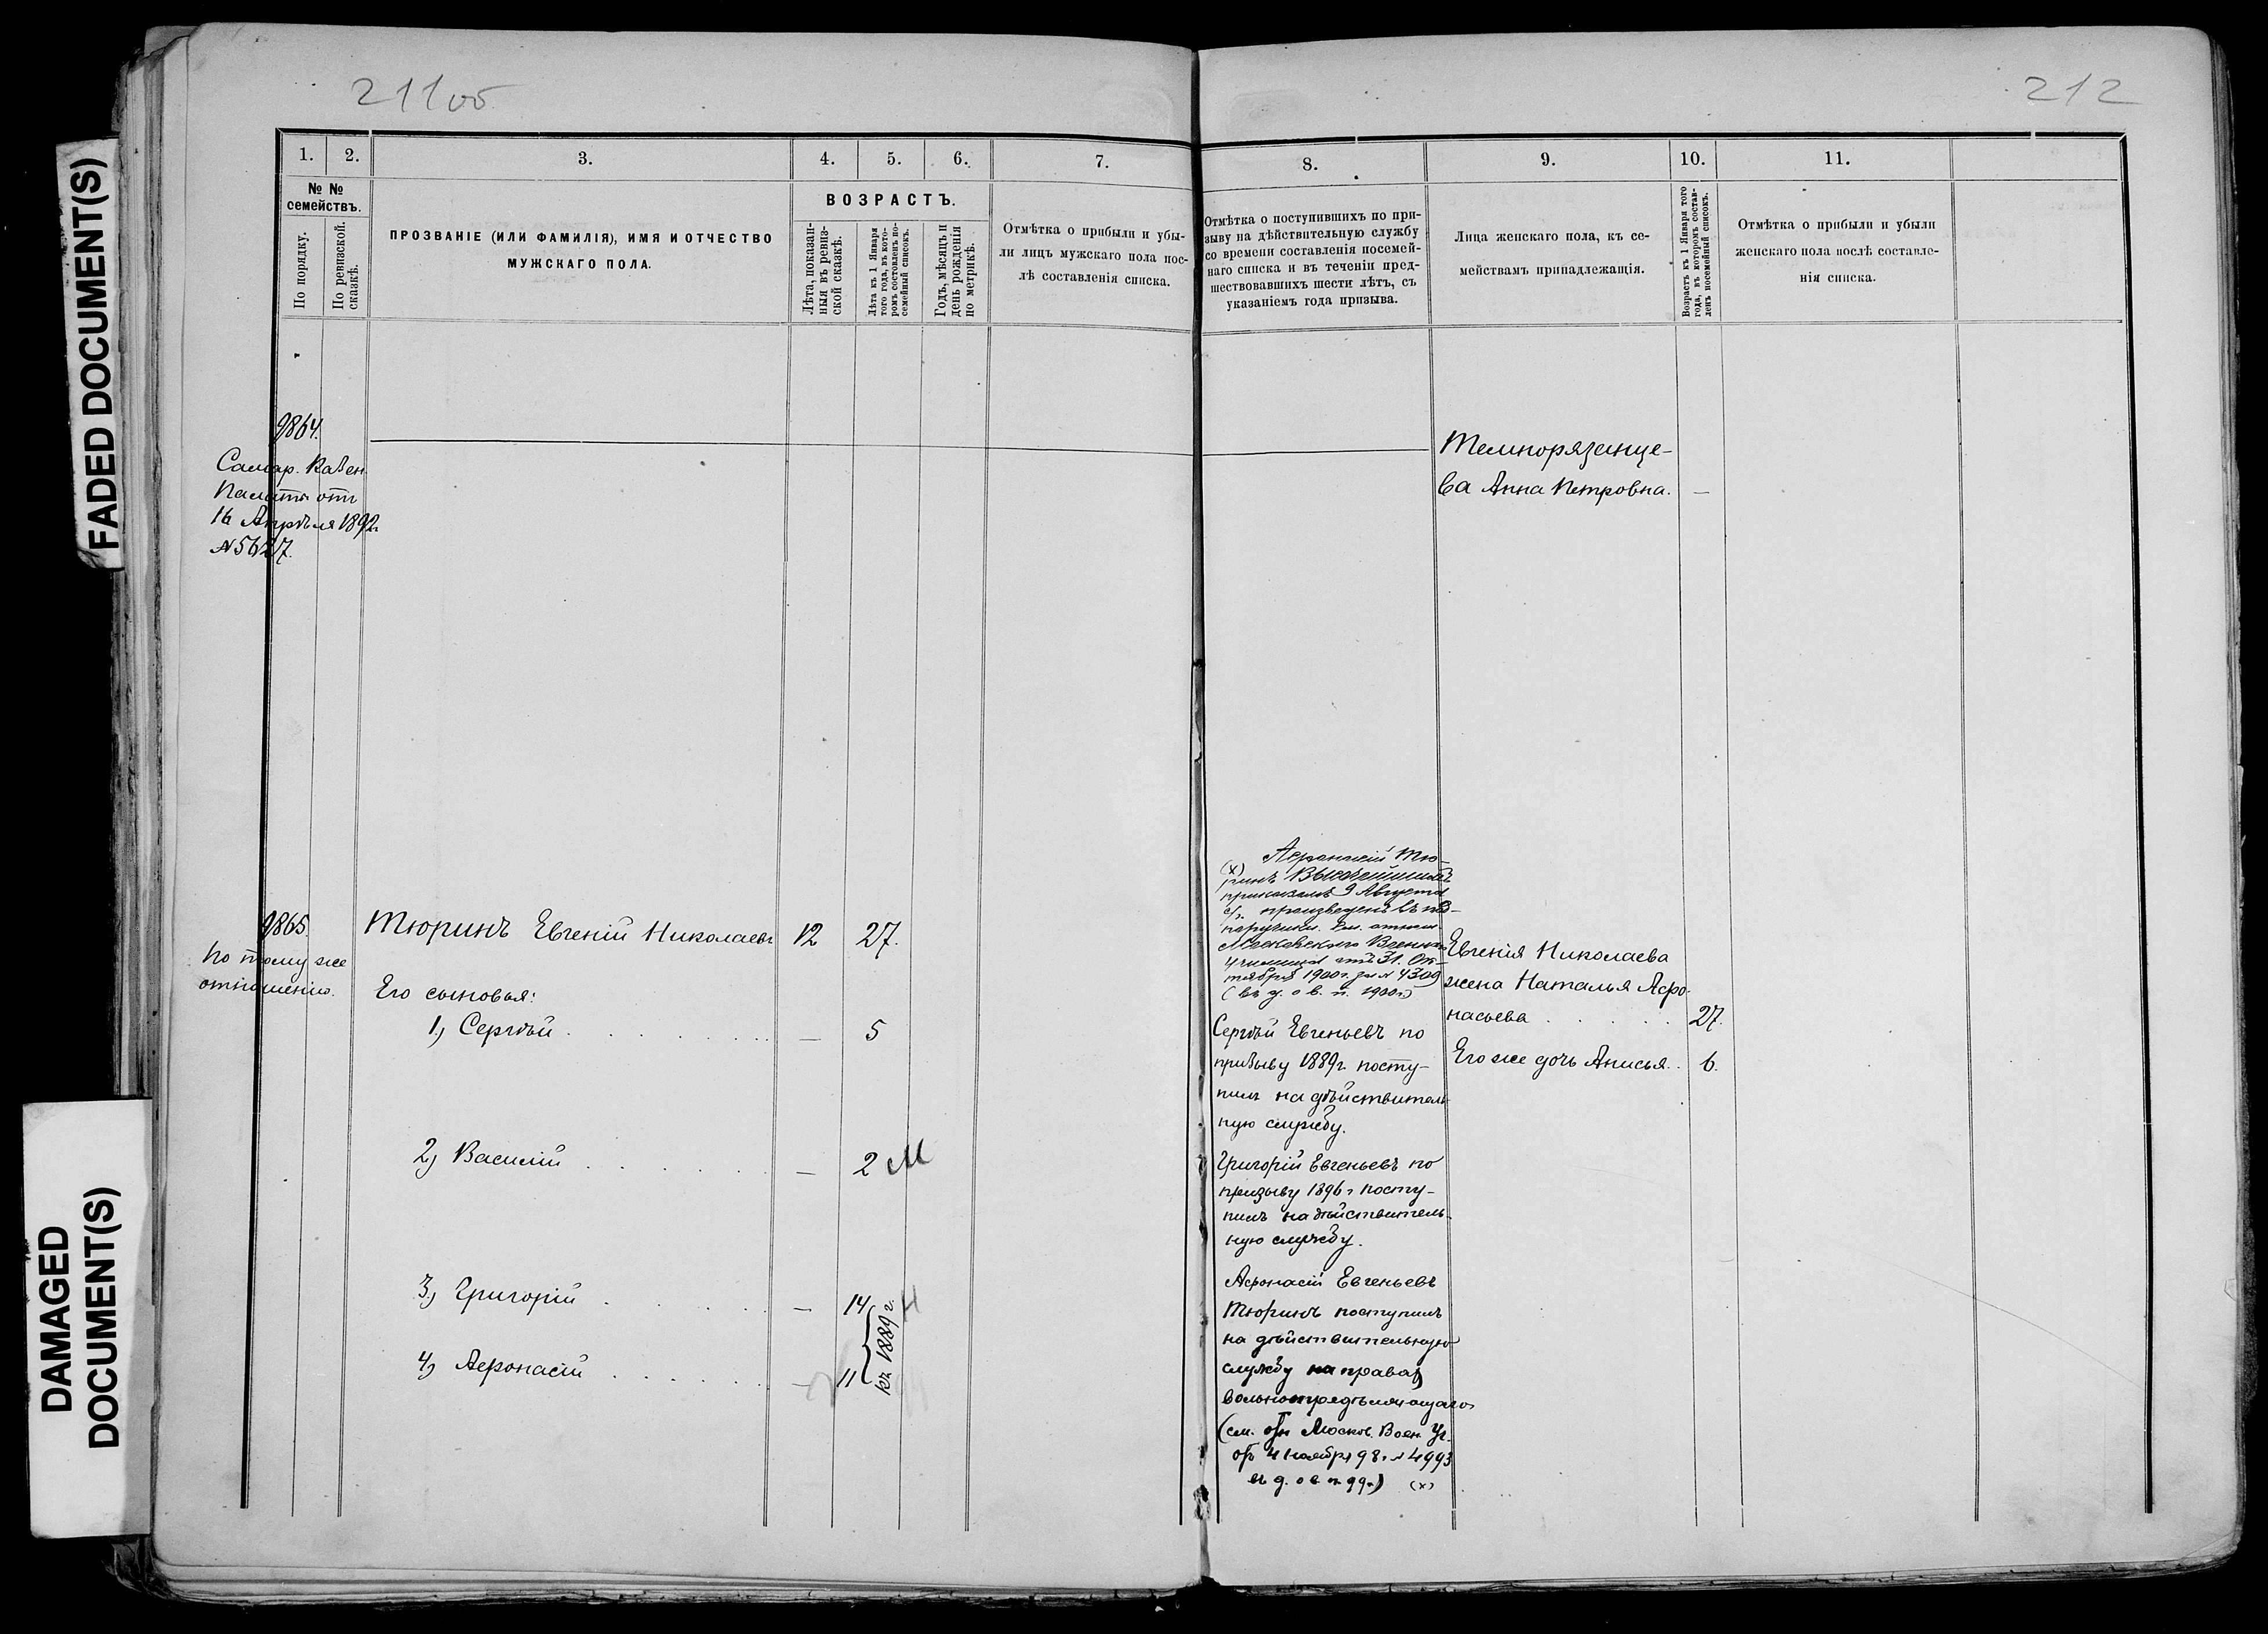 FADED DOCUMENT(S)
DAMAGED
DOCUMENT(S)
211об
212
1.
2.
3.
4.
5.
6.
7.
8.
9.
10.
11.
№ №
семействъ.
По порядку.
По ревизской
сказкѣ.
ПРОЗВАНІЕ (ИЛИ ФАМИЛІЯ), ИМЯ И ОТЧЕСТВО
МУЖСКАГО ПОЛА.
ВОЗРАСТЪ.
Лѣта, показан-
ныя въ ревиз-
ской сказкѣ.
Лѣта къ 1 Января
того года, въ кото-
ромъ составленъ по-
семейный списокъ.
Годъ, мѣсяцъ и
день рожденія
по метрикѣ.
Отмѣтка о прибыли и убы-
ли лицъ мужскаго пола пос-
лѣ составленія списка.
Отмѣтка о поступившихъ по при-
зыву на дѣйствительную службу
со времени составленія посемей-
наго списка и въ теченіи пред-
шествовавшихъ шести лѣтъ, съ
указаніемъ года призыва.
Лица женскаго пола, къ се-
мействамъ принадлежащія.
Возрастъ къ 1 Января того
года, въ которомъ состав-
ленъ посемейный списокъ.
Отмѣтка о прибыли и убыли
женскаго пола послѣ составле-
нія списка.
9864.
Самар. Казен.
Палаты отъ
16 Апрѣля 1892
№ 5627.
Темнорязанце-
ва Анна Петровна. —
9865.
По тому же
отношенію.
Тюринъ Евгеній Николаевъ 12 27.
Его сыновья:
1) Сергѣй — 5
2) Василій — 2 М
3) Григорій — 14
4) Афонасій — 11
къ 1889 г.
(х) Афонасій Тю-
ринъ Высочайшимъ
приказомъ 9 Августа
с/г. произведенъ въ под-
поручики. См. отнош.
Московскаго Военнаго
училища отъ 31. Ок-
тября 1900 г. за № 4309
(въ д. о в. п. 1900 г.)
Сергѣй Евгеньевъ по
призыву 1889 г. посту-
пилъ на дѣйствитель-
ную службу.
Григорій Евгеньевъ по
призыву 1896 г посту-
пилъ на дѣйствитель-
ную службу.
Афонасій Евгеньевъ
Тюринъ поступилъ
на дѣйствительную
службу на правахъ
вольноопредѣляющагося
(см. отн Москов. Воен. Уч.
отъ 4 ноября 98 г № 4993
въ д. о в п 99 г) (х)
Евгенія Николаева
жена Наталья Афо-
насьева 27.
Его же дочь Анисья. 6.